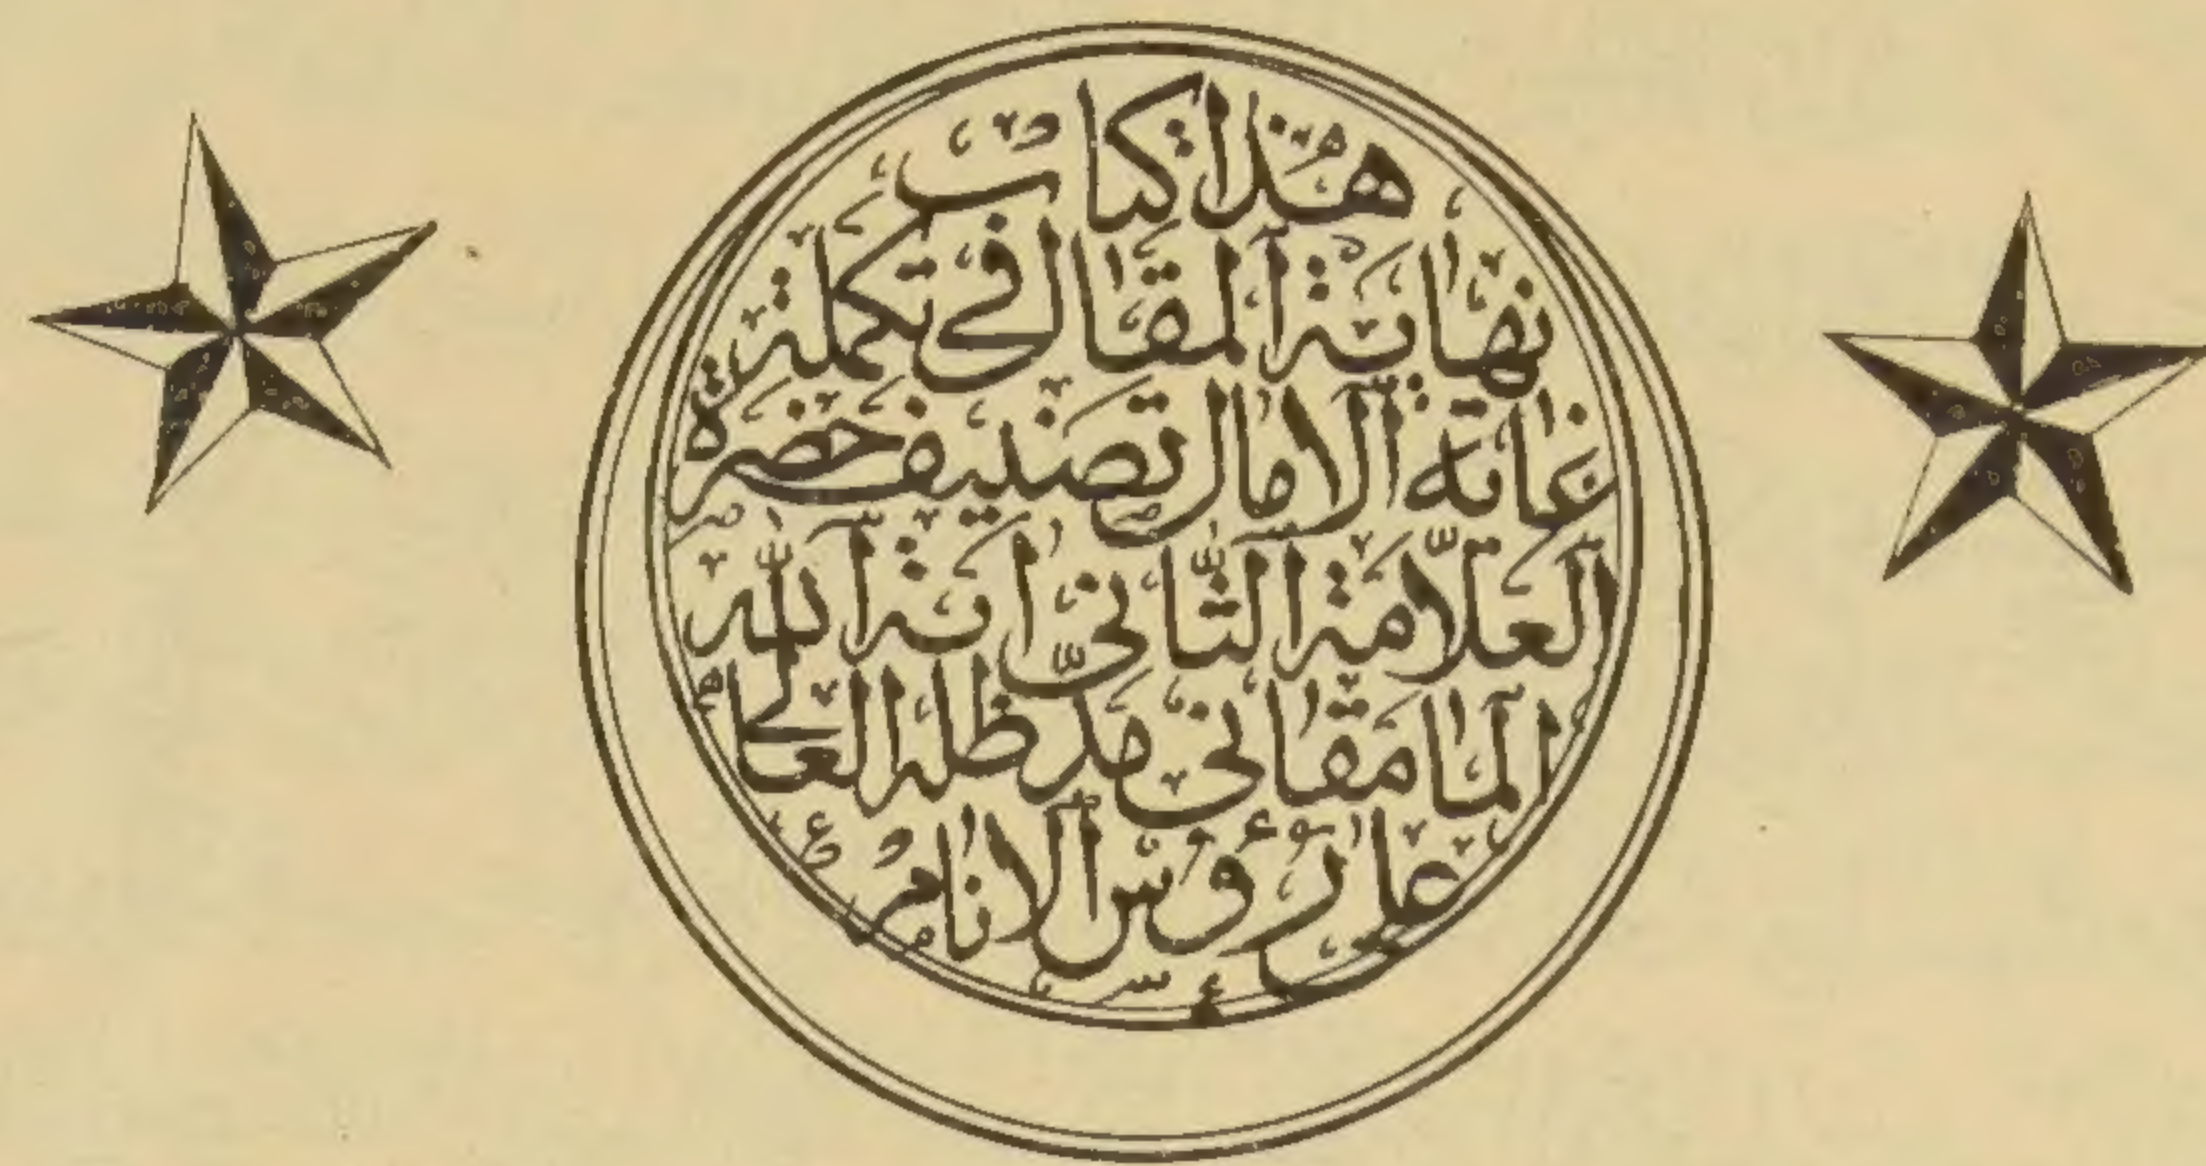 هذا كتاب
نهاية المقال في تكملة
غاية الآمال تصنيف حضرة
العلّامة الثّاني آية الله
المامقاني مد ظله العالي
على رؤس الأنام